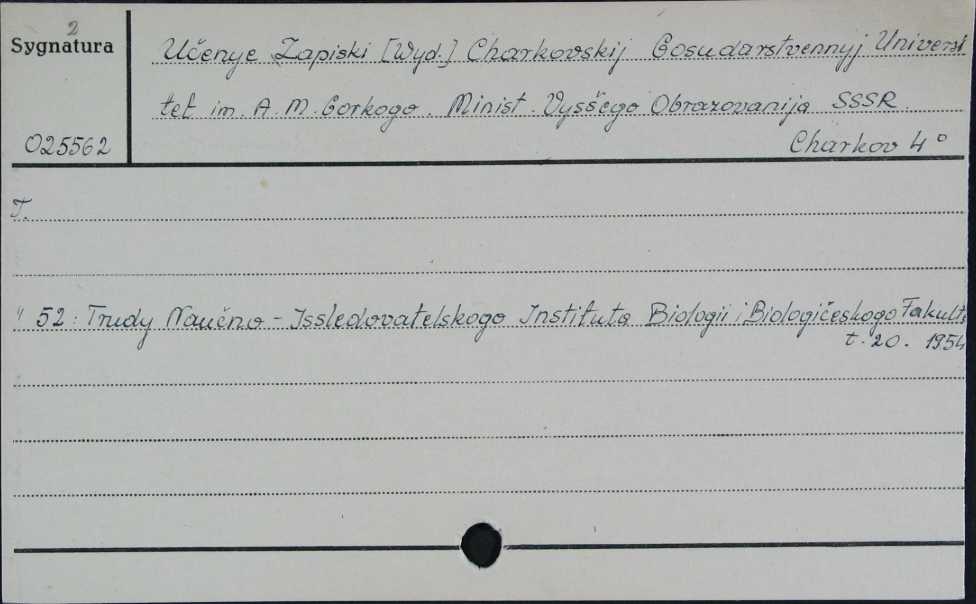 2
Sygnatura
Učenye Zapiski [Wyd.] Charkovskij Gosudarstvennyj Universi
tet im. A. M. Gorkogo. Minist. Vysšego Obrazovanija SSSR.
025562
Charkov 4°
T.
" 52: Trudy Naučno - Issledovatelskogo Instituta Biologii i Biologičeskogo Fakult
t. 20. 1954